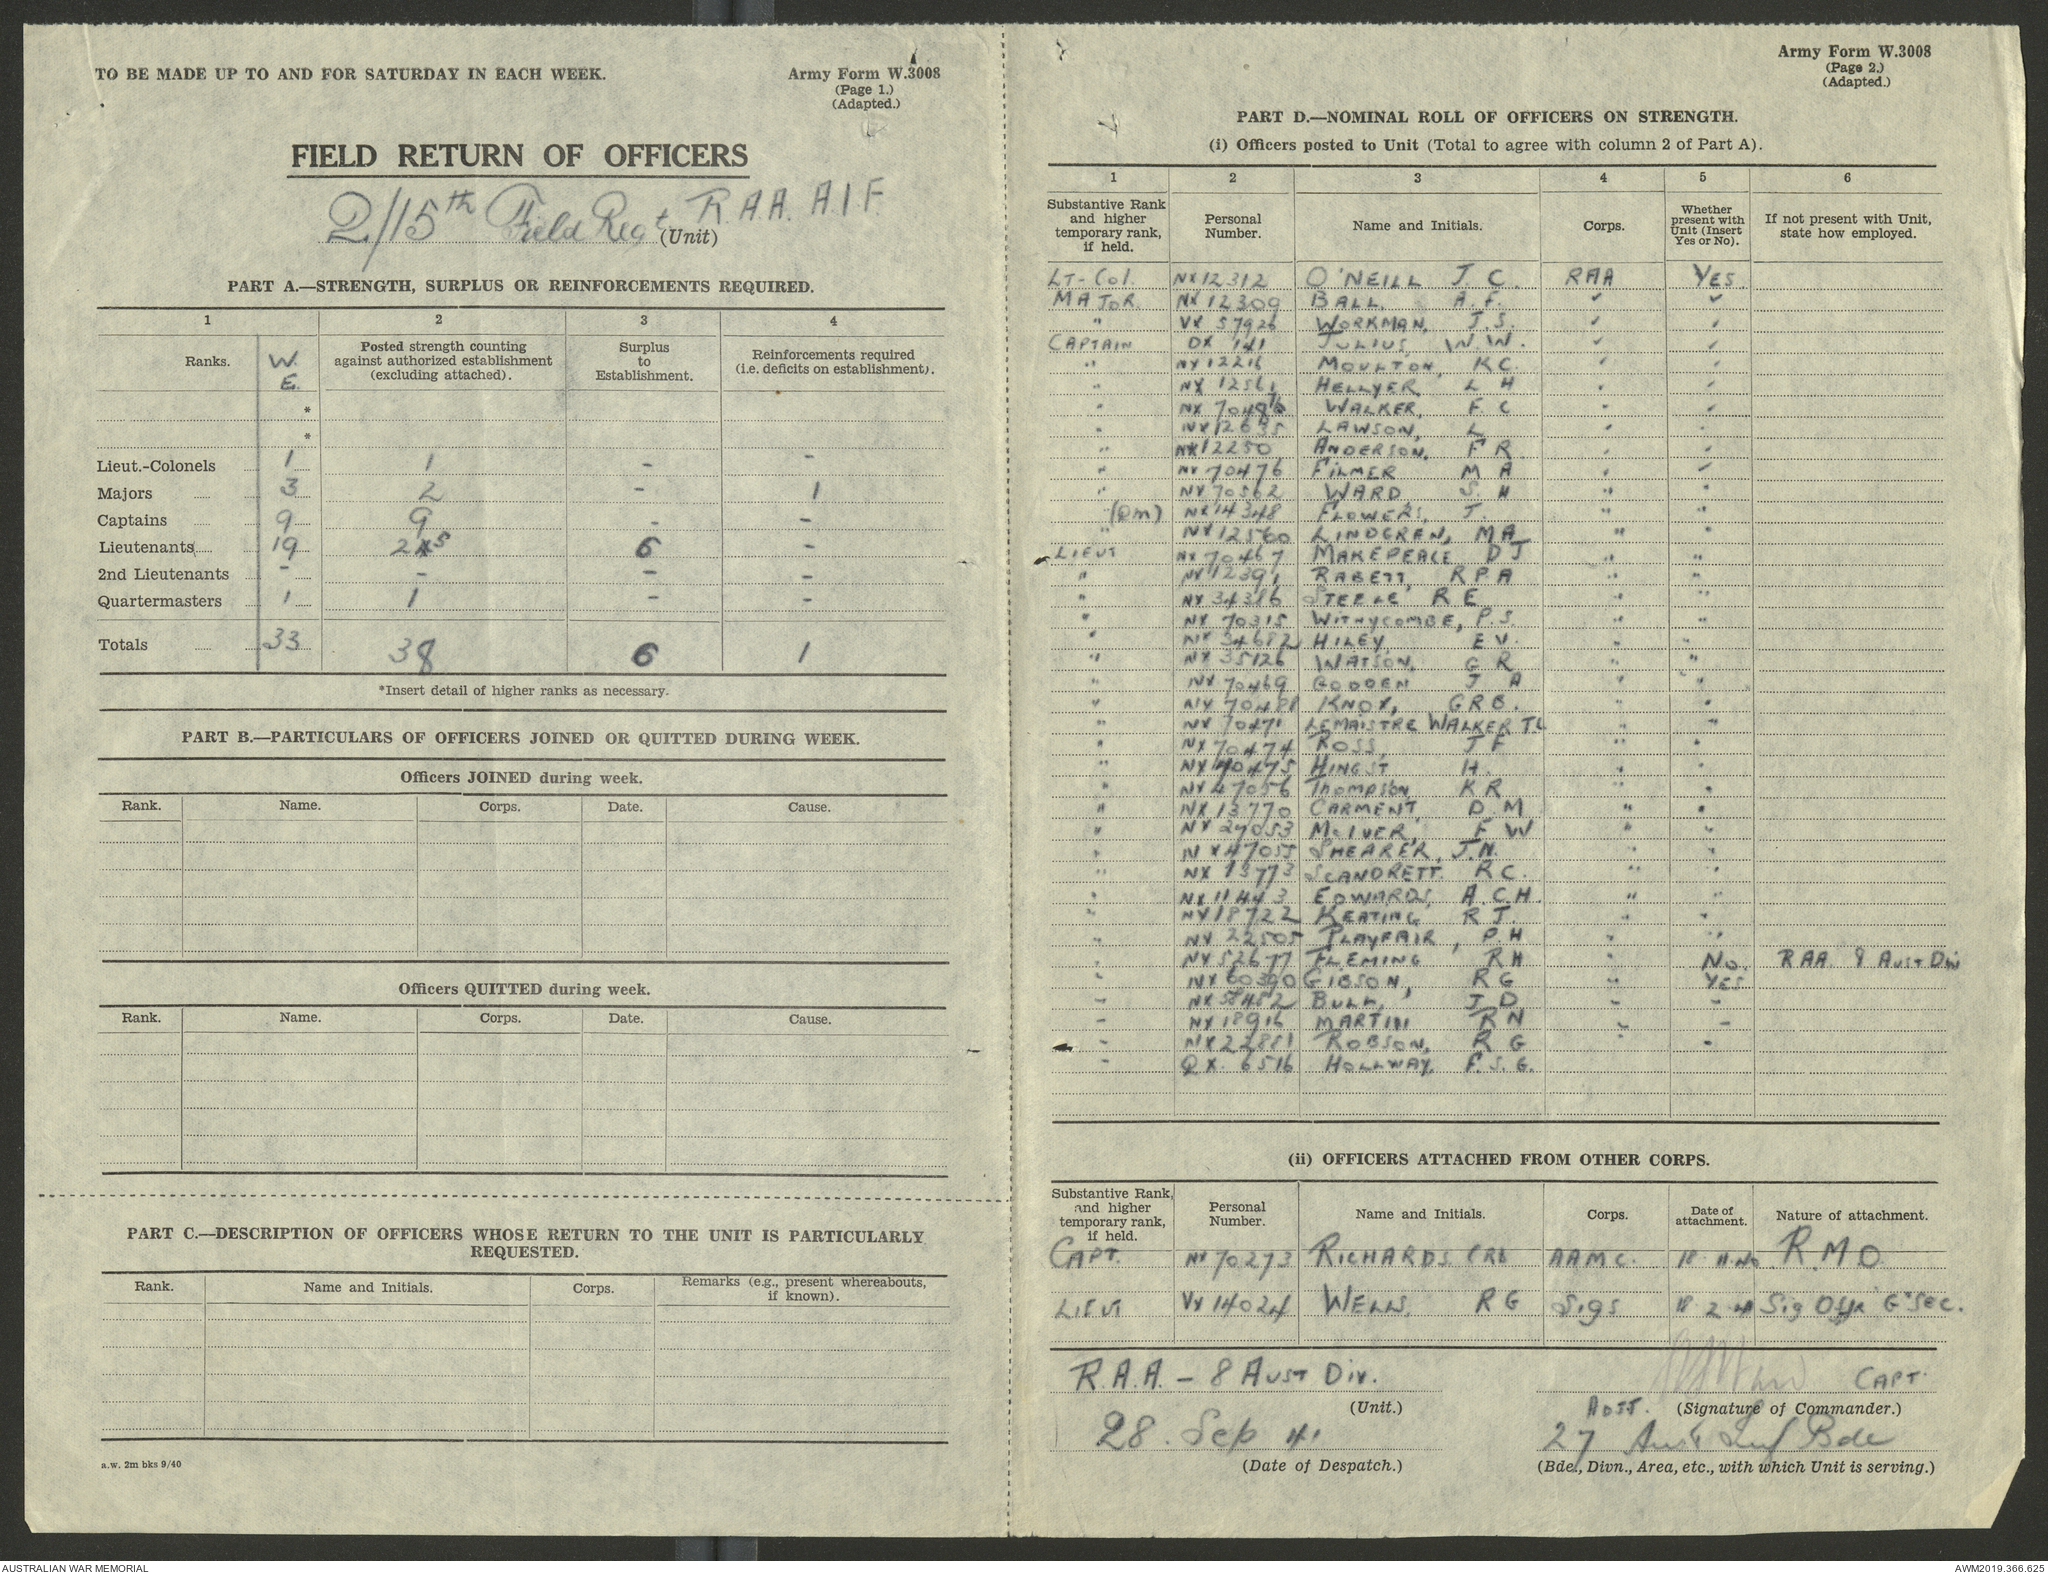 TO BE MADE UP TO AND FOR SATURDAY IN EACH WEEK.
Army Form W.3008
(Page 1.)
(Adapted.)
FIELD RETURN OF OFFICERS
2/15th Field Regt R.A.A. A.I.F.
(Unit)
PART A.—STRENGTH, SURPLUS OR REINFORCEMENTS REQUIRED.
1 2 3 4
Ranks. W.E. Posted strength counting against authorized establishment (excluding attached). Surplus to Establishment. Reinforcements required (i.e. deficits on establishment).
*
*
Lieut.-Colonels 1 1 - -
Majors 3 2 - 1
Captains 9 9 - -
Lieutenants 19 25 6 -
2nd Lieutenants - - - -
Quartermasters 1 1 - -
Totals 33 38 6 1
*Insert detail of higher ranks as necessary.
PART B.—PARTICULARS OF OFFICERS JOINED OR QUITTED DURING WEEK.
Officers JOINED during week.
Rank. Name. Corps. Date. Cause.
Officers QUITTED during week.
Rank. Name. Corps. Date. Cause.
PART C.—DESCRIPTION OF OFFICERS WHOSE RETURN TO THE UNIT IS PARTICULARLY
REQUESTED.
Rank. Name and Initials. Corps. Remarks (e.g., present whereabouts, if known).
a.w. 2m bks 9/40
Army Form W.3008
(Page 2.)
(Adapted.)
PART D.—NOMINAL ROLL OF OFFICERS ON STRENGTH.
(i) Officers posted to Unit (Total to agree with column 2 of Part A).
1 2 3 4 5 6
Substantive Rank and higher temporary rank, if held. Personal Number. Name and Initials. Corps. Whether present with Unit (Insert Yes or No). If not present with Unit, state how employed.
LT-Col. NX12312 O'NEILL J C RAA YES
MAJOR NX12309 BALL, A.F. ✓ ✓
" VX 57926 WORKMAN, J.S. ✓ ✓
CAPTAIN DX 141 JULIUS, W.W. ✓ ✓
" NX12216 MOULTON, KC. ✓ ✓
" NX 12561 HELLYER L H
" WALKER, F C
" NX12635 LAWSON, L
" NX12250 ANDERSON, F R
" NX70476 FILMER M A
" NX70502 WARD S. H " "
" (Qm) NX14348 FLOWERS, J. " "
" NX12560 LINDGREN, MA " "
LIEUT NX70467 MAKEPEACE DJ " "
" NX12391 RABETT, RPA " "
" NX34386 STEELE R E " "
" NX 70315 WITHYCOMBE, P.S. " "
" NX34682 HILEY, E V. " "
" NX35126 WATSON, G R " "
" NX70469 GODDEN J A " "
" KNOX, GRB. " "
" NX70471 LEMAISTRE WALKER TL " "
" NX70474 ROSS, J F " "
" HINGST H. " "
" NX47056 THOMPSON K R " "
" NX13770 CARMENT, D M " "
" NX27053 McIVER, F W " "
" NX47055 SHEARER, J.N. " "
" NX13773 SCANDRETT R C. " "
" NX11443 EDWARDS, A.C.H. " "
" NX18722 KEATING R J. " "
" NX 22505 PLAYFAIR, P.H " "
" NX52677 FLEMING RH " No RAA 8 Aust Div
" GIBSON, R G " YES
" BULL, J D " "
" NX18916 MARTIN RN " "
" NX22881 ROBSON, R G "
" QX 6516 HOLLWAY, F.S.G.
(ii) OFFICERS ATTACHED FROM OTHER CORPS.
Substantive Rank, and higher temporary rank, if held. Personal Number. Name and Initials. Corps. Date of attachment. Nature of attachment.
CAPT. NX70273 RICHARDS CRB AAMC. 18.11.40 R.M.O
LIEUT VX14024 WELLS, R G Sigs 18 2 41 Sig Offr "G" SEC.
R.A.A. - 8 AUST DIV.
(Unit.)
28. Sep 41
(Date of Despatch.)
CAPT.
ADJT. (Signature of Commander.)
27 Aust Inf Bde
(Bde., Divn., Area, etc., with which Unit is serving.)
AUSTRALIAN WAR MEMORIAL
AWM2019.366.625